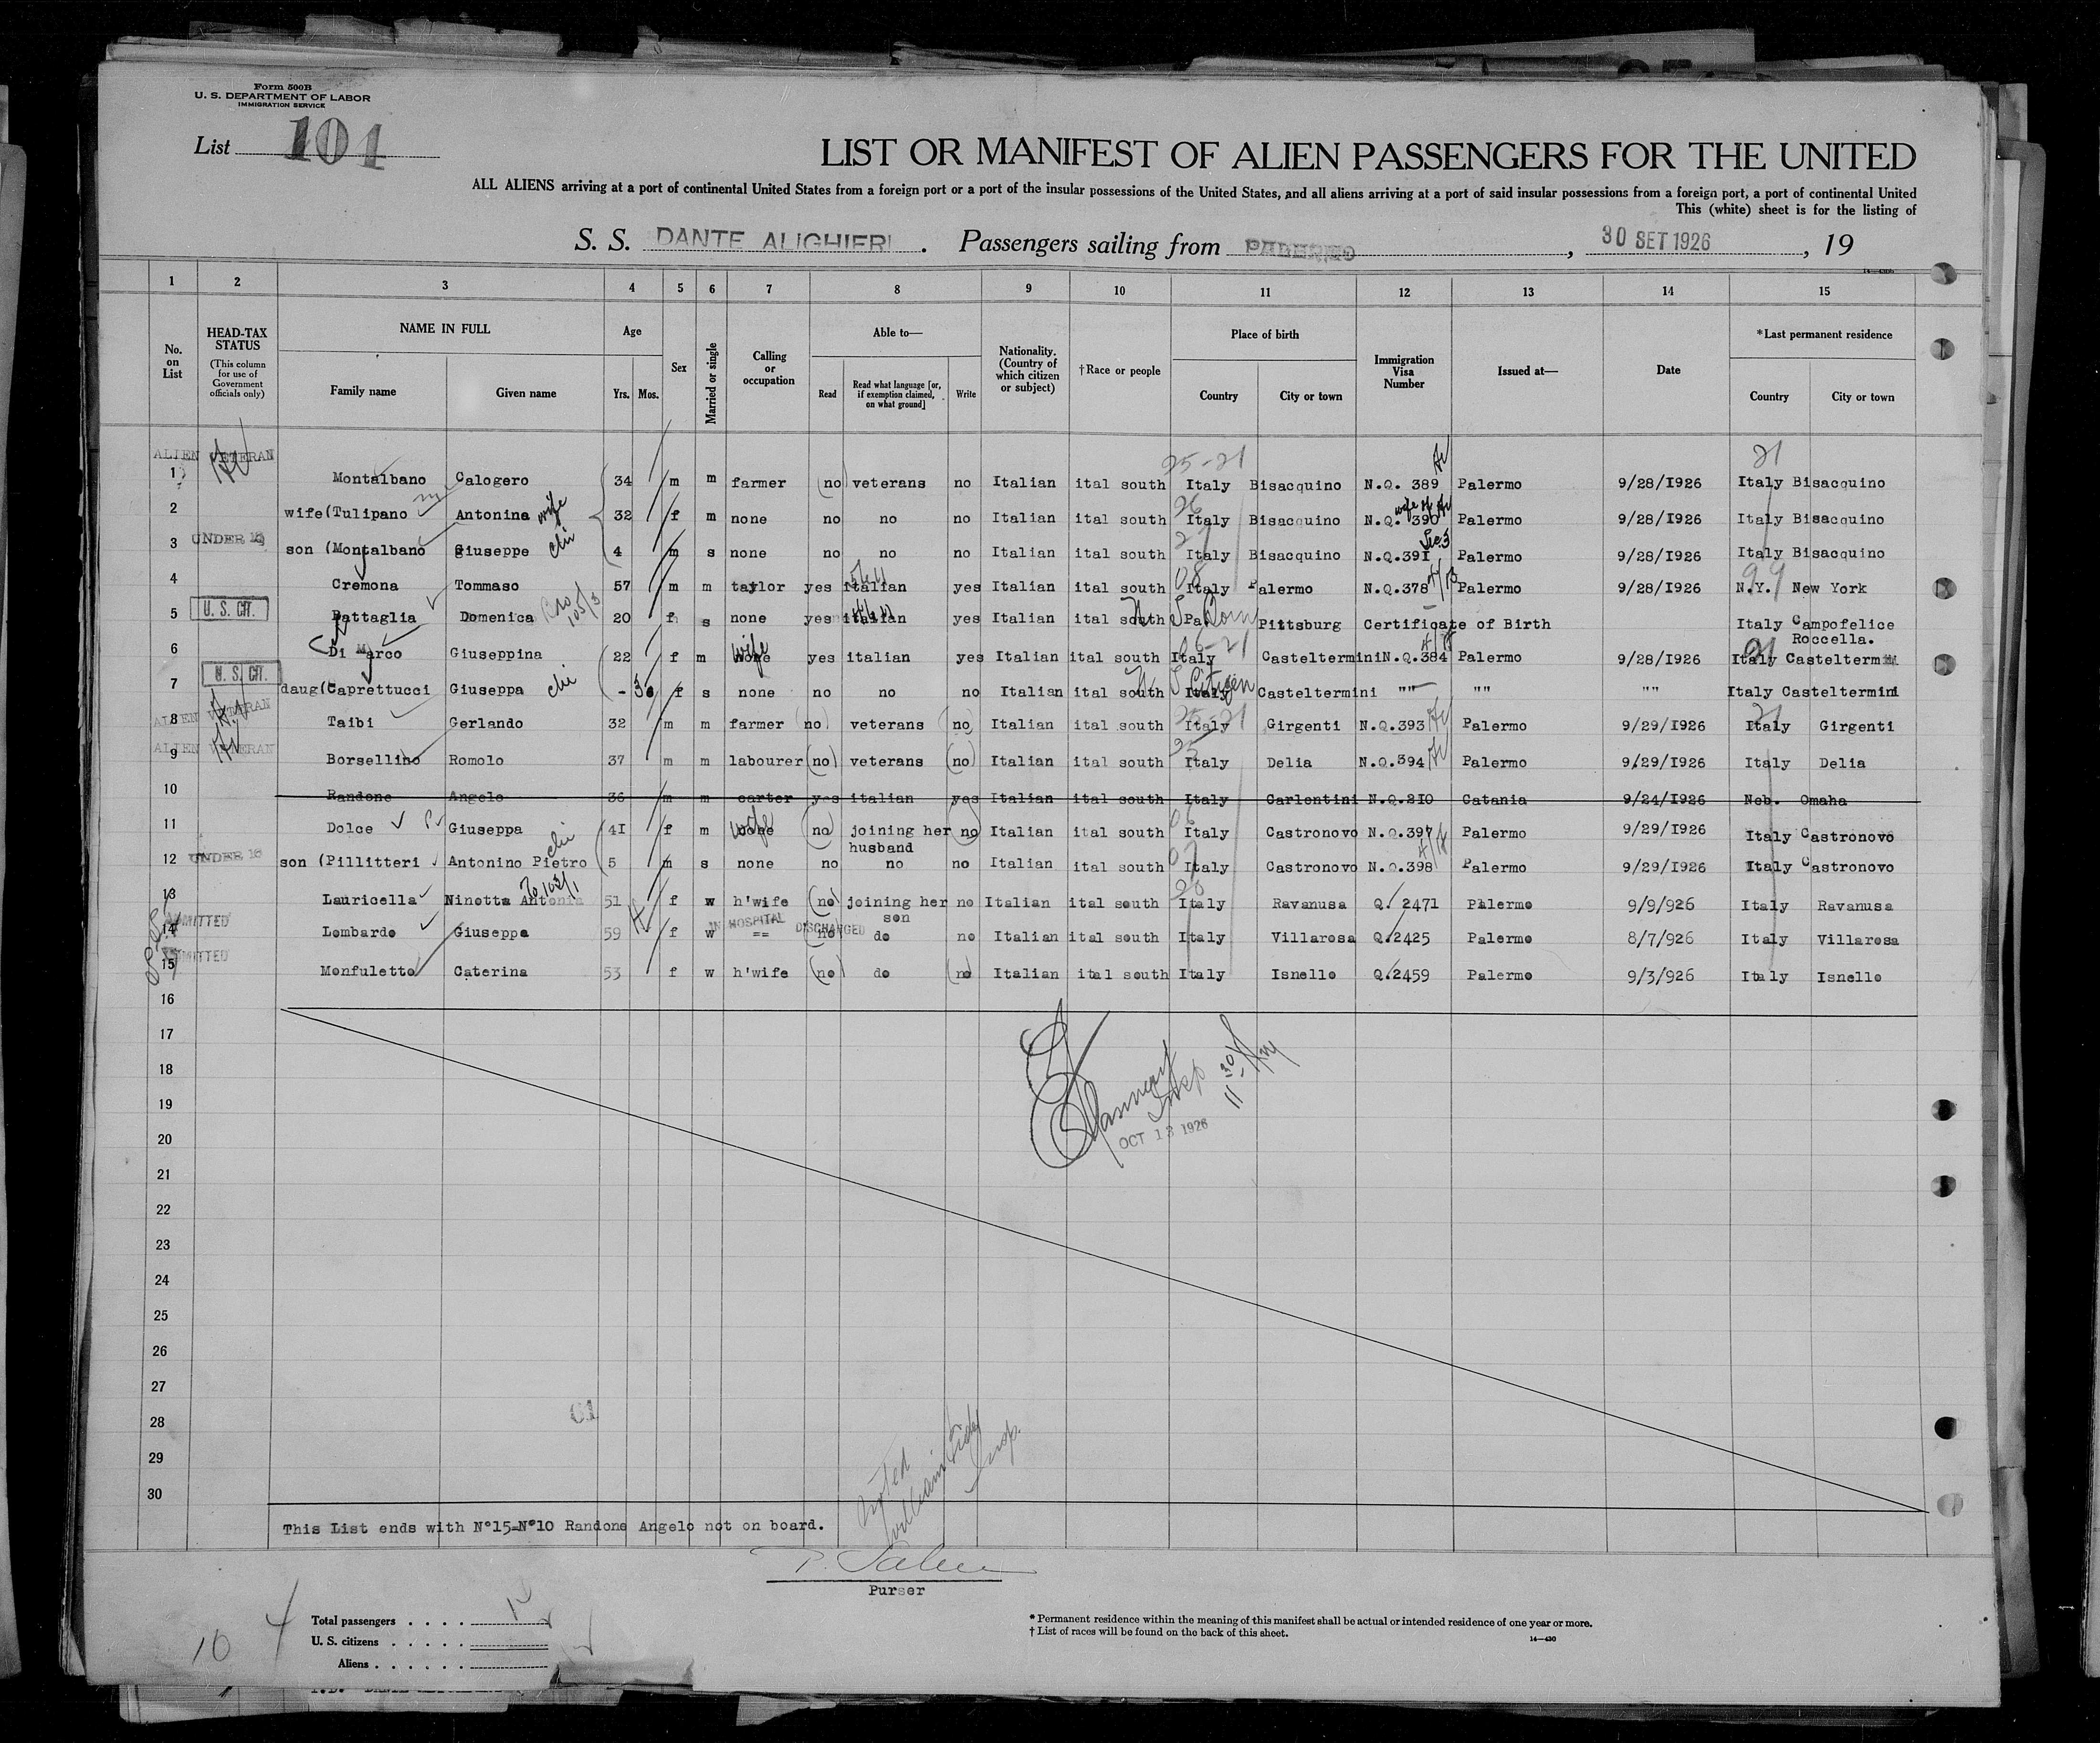 Form 500B
U. S. DEPARTMENT OF LABOR
IMMIGRATION SERVICE
List 101
LIST OR MANIFEST OF ALIEN PASSENGERS FOR THE UNITED
ALL ALIENS arriving at a port of continental United States from a foreign port or a port of the insular possessions of the United States, and all aliens arriving at a port of said insular possessions from a foreign port, a port of continental United
This (white) sheet is for the listing of
S. S. DANTE ALIGHIERI . Passengers sailing from PALERMO , 30 SET 1926 , 19
1 2 3 4 5 6 7 8 9 10 11 12 13 14 15
No. on List
HEAD-TAX STATUS (This column for use of Government officials only)
NAME IN FULL
Family name
Given name
Age
Yrs. Mos.
Sex
Married or single
Calling or occupation
Able to—
Read
Read what language [or, if exemption claimed, on what ground]
Write
Nationality. (Country of which citizen or subject)
†Race or people
Place of birth
Country
City or town
Immigration Visa Number
Issued at—
Date
*Last permanent residence
Country
City or town
ALIEN VETERAN 25-21 21
1 Montalbano Calogero 34 m m farmer (no) veterans no Italian ital south Italy Bisacquino N.Q. 389 Palermo 9/28/1926 Italy Bisacquino
2 wife(Tulipano Antonina wife 32 f m none no no no Italian ital south Italy Bisacquino N.Q. 390 Palermo 9/28/1926 Italy Bisacquino
3 UNDER 16 son (Montalbano Giuseppe 4 m s none no no no Italian ital south Italy Bisacquino N.Q.391 Palermo 9/28/1926 Italy Bisacquino
4 Cremona Tommaso 57 m m taylor yes italian yes Italian ital south Italy Palermo N.Q.378 Palermo 9/28/1926 N.Y. New York
5 U. S. CIT. Battaglia Domenica 20 f s none yes italian yes Italian ital south Pa Born Pittsburg Certificate of Birth Italy Campofelice Roccella.
6 Di Marco Giuseppina 22 f m none wife yes italian yes Italian ital south Italy Casteltermini N.Q.384 Palermo 9/28/1926 Italy Casteltermini
7 U. S. CIT. daug(Caprettucci Giuseppa - f s none no no no Italian ital south Italy Citizen Casteltermini "" "" "" Italy Casteltermini
8 ALIEN VETERAN Taibi Gerlando 32 m m farmer (no) veterans (no) Italian ital south Italy Girgenti N.Q.393 Palermo 9/29/1926 Italy Girgenti
9 ALIEN VETERAN Borsellino Romolo 37 m m labourer (no) veterans (no) Italian ital south Italy Delia N.Q.394 Palermo 9/29/1926 Italy Delia
10 Randone Angelo 36 m m carter yes italian yes Italian ital south Italy Carlentini N.Q.210 Catania 9/24/1926 Neb. Omaha
11 Dolce Giuseppa 41 f m none wife (no) joining her husband no Italian ital south Italy Castronovo N.Q.397 Palermo 9/29/1926 Italy Castronovo
12 UNDER 16 son (Pillitteri Antonino Pietro 5 m s none no no no Italian ital south Italy Castronovo N.Q.398 Palermo 9/29/1926 Italy Castronovo
13 Lauricella Ninotta Antonia 51 f w h'wife (no) joining her son no Italian ital south Italy Ravanusa Q. 2471 Palermo 9/9/926 Italy Ravanusa
14 ADMITTED Lombardo Giuseppa 59 f w == IN HOSPITAL DISCHARGED (no) do no Italian ital south Italy Villarosa Q.2425 Palermo 8/7/926 Italy Villarosa
15 ADMITTED Monfuletto Caterina 53 f w h'wife (no) do (no) Italian ital south Italy Isnello Q.2459 Palermo 9/3/926 Italy Isnello
16
17
18
19
20
OCT 13 1926
21
22
23
24
25
26
27
28
29
30
61
Noted
Insp.
This List ends with N°15=N°10 Randone Angelo not on board.
Purser
Total passengers
U. S. citizens
Aliens
10 4
* Permanent residence within the meaning of this manifest shall be actual or intended residence of one year or more.
† List of races will be found on the back of this sheet.
14—430